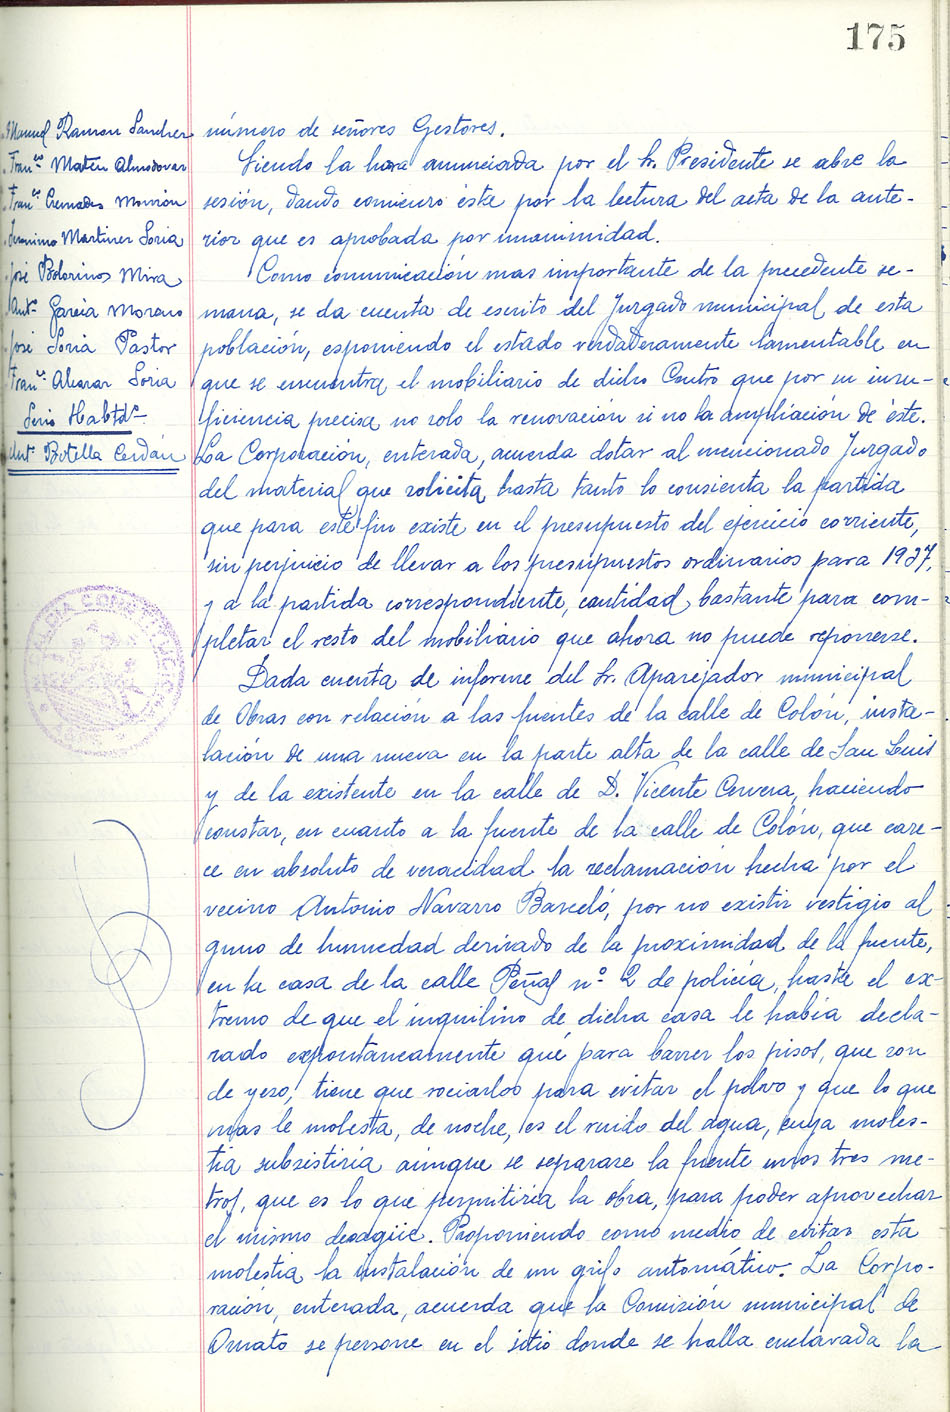 175
Manuel Ramon Sancher
Franco Mateu Almodovar
Franco Cremades Monrón
Jeronimo Martiner Soria
José Bolorinos Mira
Anto Garcia Moreno
José Soria Pastor
Franco Alvarar Soria
Srio Habtdo
Anto Botella Cerdán
número de señores Gestores.
Siendo la hora anunciada por el Sr. Presidente se abre la
sesión, dando comienro éste por la lectura del acta de la ante-
rior que es aprobada por unanimidad.
Como comunicación mas importante de la precedente se-
mana, se da cuenta de escrito del Jurgado municipal de esta
población, esponiendo el estado verdaderamente lamentable en
que se encuentra el mobiliario de dicho Centro que por su insu-
ficiencia precisa no solo la renovación si no la ampliación de éste.
La Corporación, enterada, acuerda dotar al mencionado Jurgado
del material que solicita hasta tanto lo consienta la partida
que para este fin existe en el presupuesto del ejercicio corriente,
sin perjuicio de llevar a los presupuestos ordinarios para 1937,
y a la partida correspondiente, cantidad bastante para com-
pletar el resto del mobiliario que ahora no puede reponerse.
Dada cuenta de informe del Sr. Aparejador municipal
de Obras con relación a las fuentes de la calle de Colón, insta-
lación de una nueva en la parte alta de la calle de San Luis
y de la existente en la calle de D. Vicente Cervera, haciendo
constar, en cuanto a la fuente de la calle de Colón, que care-
ce en absoluto de veracidad la reclamación hecha por el
vecino Antonio Navarro Barceló, por no existir vestigio al
guno de humedad derivado de la proximidad de la fuente,
en la casa de la calle Peñal nº 2 de policía, hasta el ex-
tremo de que el inquilino de dicha casa le había decla-
rado expontaneamente que para barrer los pisos, que son
de yeso, tiene que rociarlos para evitar el polvo y que lo que
mas le molesta, de noche, es el ruido del agua, cuya moles-
tia subsistiria aunque se separase la fuente unos tres me-
tros, que es lo que permitiria la obra, para poder aprovechar
el mismo desagüe. Proponiendo como medio de evitar esta
molestia la instalación de un grifo automático. La Corpo-
ración, enterada, acuerda que la Comisión municipal de
Ornato se persone en el sitio donde se halla enclavada la